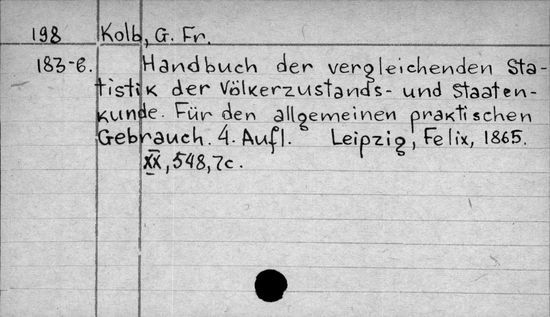 198 Kolb, G. Fr.
183-6. Handbuch der vergleichenden Sta-
tistik der Völkerzustands- und Staaten-
kunde. Für den allgemeinen praktischen
Gebrauch. 4. Aufl. Leipzig, Felix, 1865.
XX, 548, 7c.